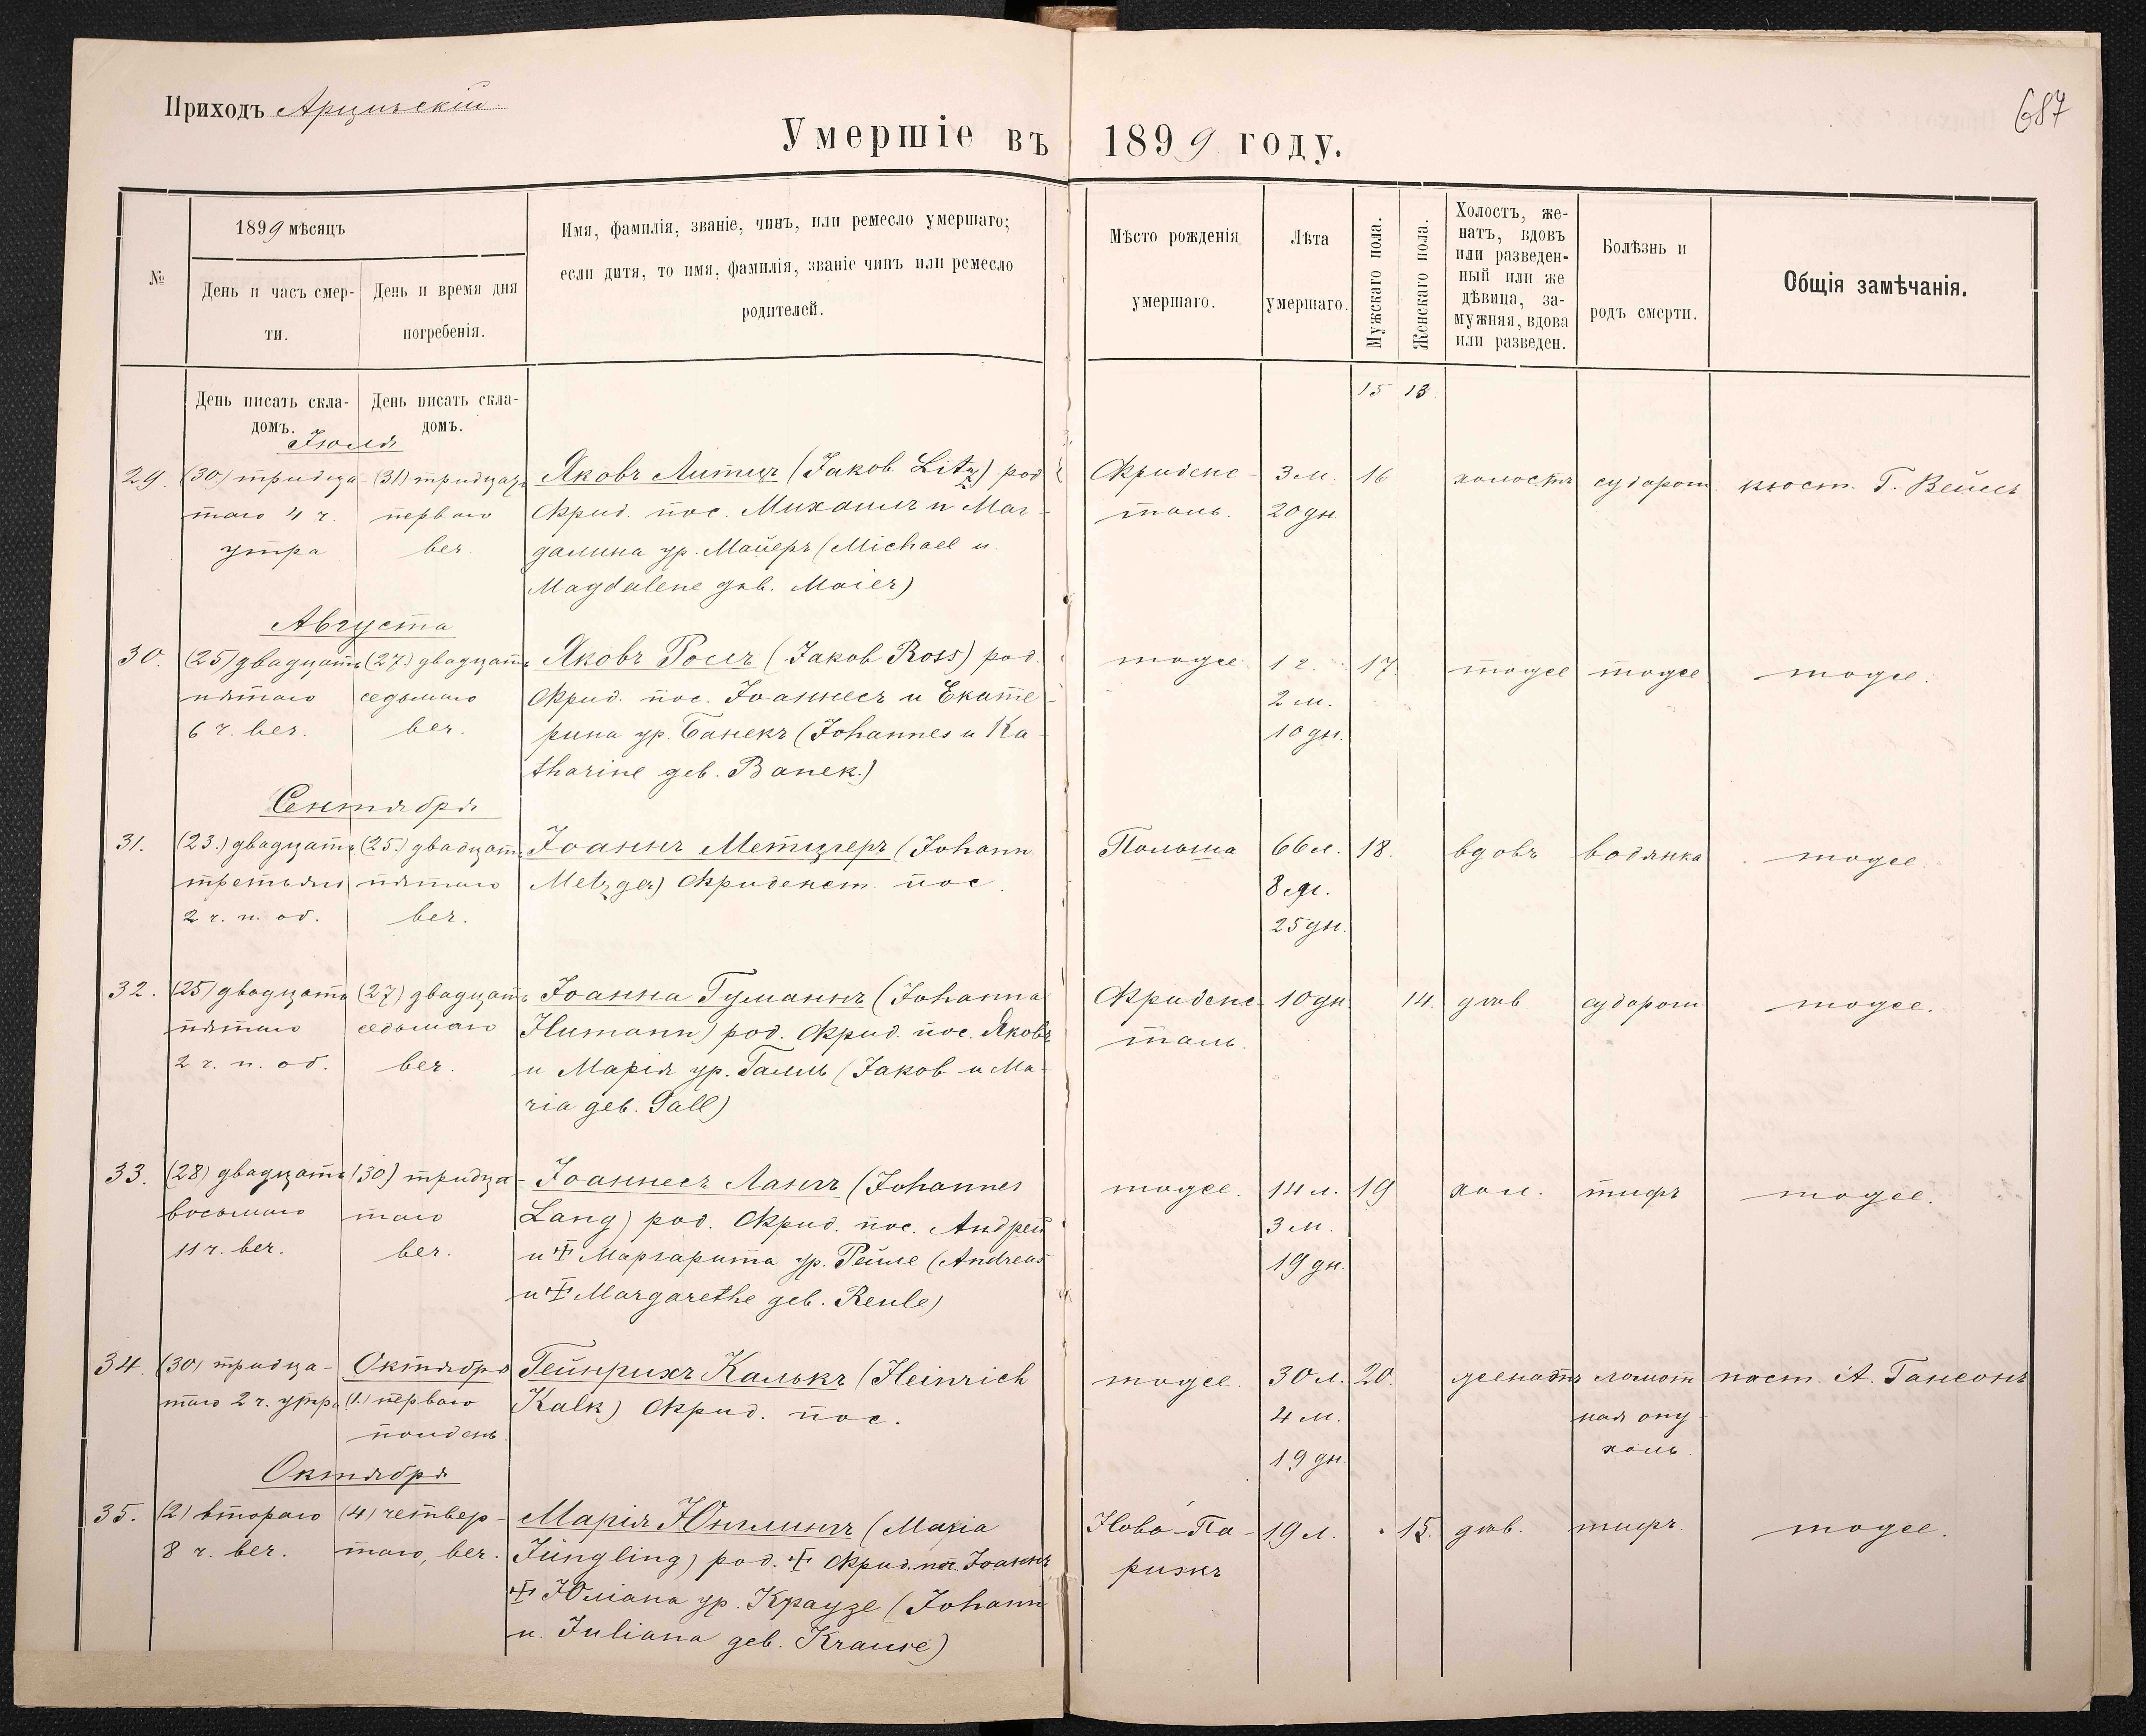 Приходъ Арцизскій
687
Умершіе въ 1899 году.
№
1899 мѣсяцъ
День и часъ смер-
ти.
День и время дня
погребенія.
Имя, фамилія, званіе, чинъ, или ремесло умершаго;
если дитя, то имя, фамилія, званіе чинъ или ремесло
родителей.
Мѣсто рожденія
умершаго.
Лѣта
умершаго.
Мужскаго пола.
Женскаго пола.
Холостъ, же-
натъ, вдовъ
или разведен-
ный или же
дѣвица, за-
мужняя, вдова
или разведен.
Болѣзнь и
родъ смерти.
Общія замѣчанія.
День писать скла-
домъ.
День писать скла-
домъ.
15 13.
Іюля
29. (30.) тридца- (31) тридцать Яковъ Литцъ (Jakob Litz) род. Фриденс- 3 м. 16 холостъ судорог. кюст. Г. Вейсъ
таго 4 ч. перваго Фрид. пос. Михаилъ и Маг- таль. 20 дн.
утра веч. далина ур. Майеръ (Michael u.
Magdalene geb. Maier)
Августа
30. (25) двадцать (27.) двадцать Яковъ Россъ (Jakob Ross) род. тоже. 1 г. 17. тоже тоже тоже.
пятаго седьмаго Фрид. пос. Іоаннесъ и Екате- 2 м.
6 ч. веч. веч. рина ур. Банекъ (Johannes u Ka- 10 дн.
tharine geb. Banek.)
Сентября
31. (23.) двадцать (25.) двадцать Іоаннъ Метцгеръ (Johann Польша 66 л. 18. вдовъ водянка тоже.
третьяго пятаго Metzger) Фриденст. пос. 8 м.
2 ч. п. об. веч. 25 дн.
32. (25) двадцать (27) двадцать Іоанна Гуманнъ (Johanna Фриденс- 10 дн 14. дѣв. судорог тоже.
пятаго седьмаго Humann) род. Фрид. пос. Яковъ таль.
2 ч. п. об. веч. и Марія ур. Галль (Jakob u Ma-
ria geb. Gall)
33. (28) двадцать (30) тридца- Іоаннесъ Лангъ (Johannes тоже. 14 л. 19 хол. тифъ тоже.
восьмаго таго Lang) род. Фрид. пос. Андрей 3 м.
11 ч. веч. веч. и ‡ Маргарита ур. Рейле (Andreas 19 дн.
u ‡ Margarethe geb. Reule)
34. (30) тридца- Октября Гейнрихъ Калькъ (Heinrich тоже. 30 л. 20. женатъ ломот- паст. А. Гансонъ
таго 2 ч. утра (1.) перваго Kalk) Фрид. пос. 4 м. ная опу-
полдень. 19 дн. холь
Октября
35. (2) втораго (4) четвер- Марія Юнглингъ (Maria Ново-Па- 19 л. 15. дѣв. тифъ. тоже.
8 ч. веч. таго, веч. Jüngling) род. ‡ Фрид. пос. Іоаннъ рижъ
‡ Юліана ур. Краузе (Johann
u. Juliana geb. Krause)